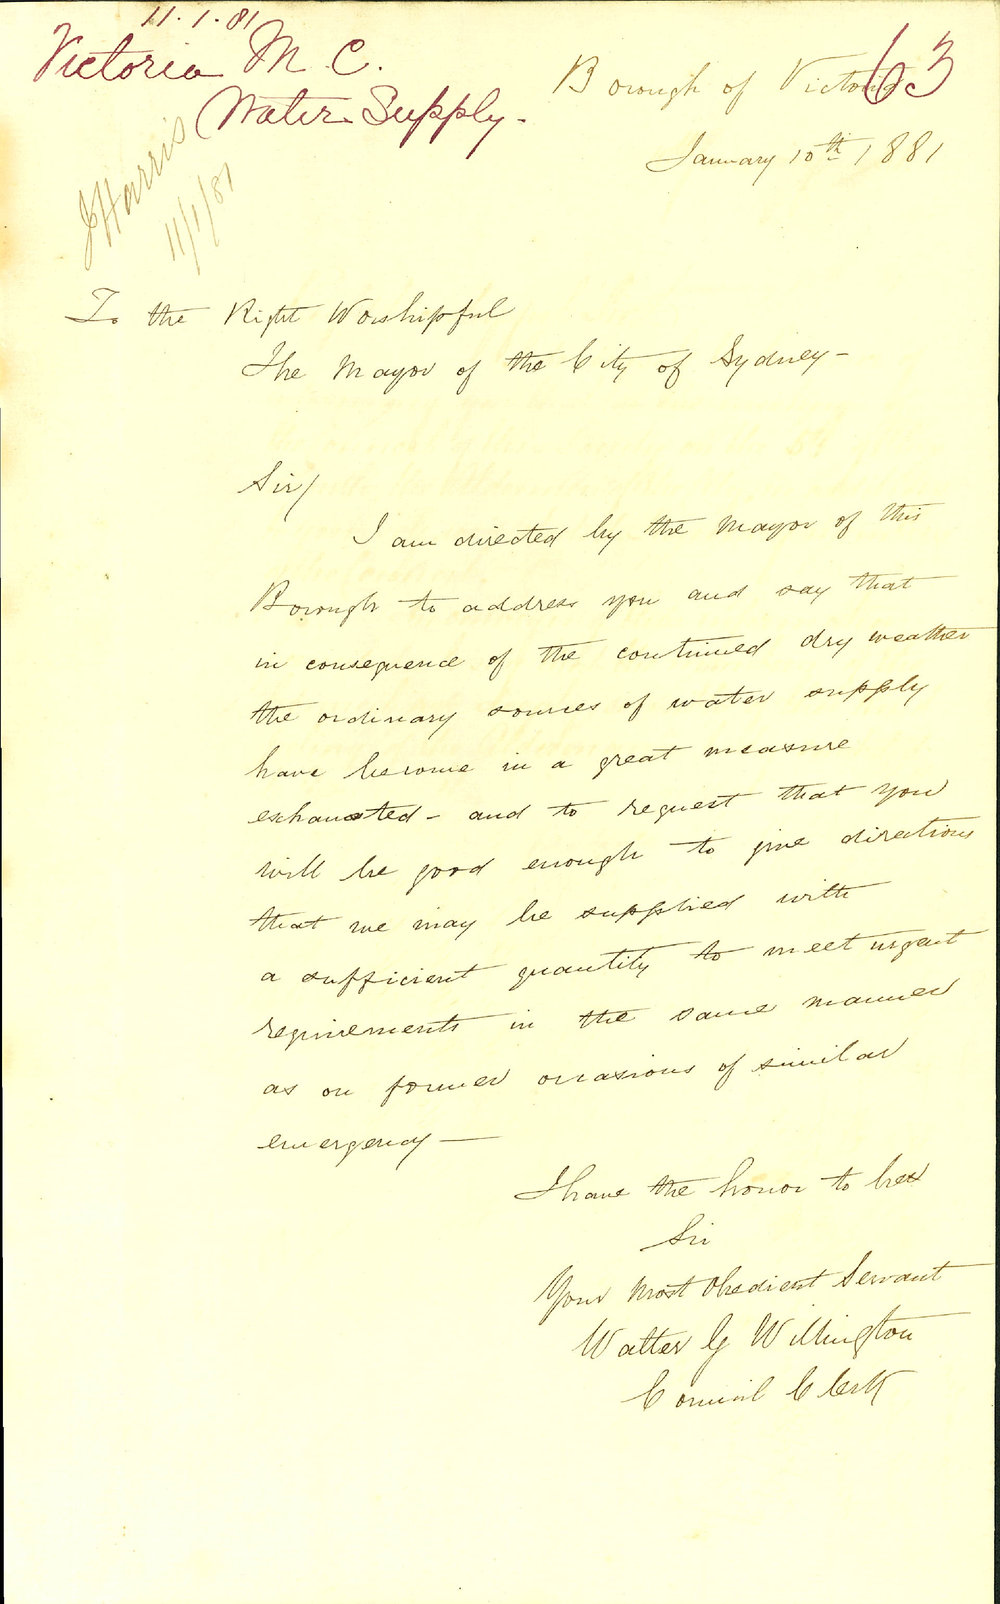 11.1.81
Victoria M C.
Water Supply.
63
J Harris
11/1/81
Borough of Victoria
January 10th 1881
To the Right Worshipful
The Mayor of the City of Sydney-
Sir/
I am directed by the Mayor of this
Borough to address you and say that
in consequence of the continued dry weather
the ordinary sources of water supply
have become in a great measure
exhausted - and to request that you
will be good enough to give directions
that we may be supplied with
a sufficient quantity to meet urgent
requirements in the same manner
as on former occasions of similar
emergency —
I have the honor to be
Sir
Your Most Obedient Servant
Walter G Willington
Council Clerk